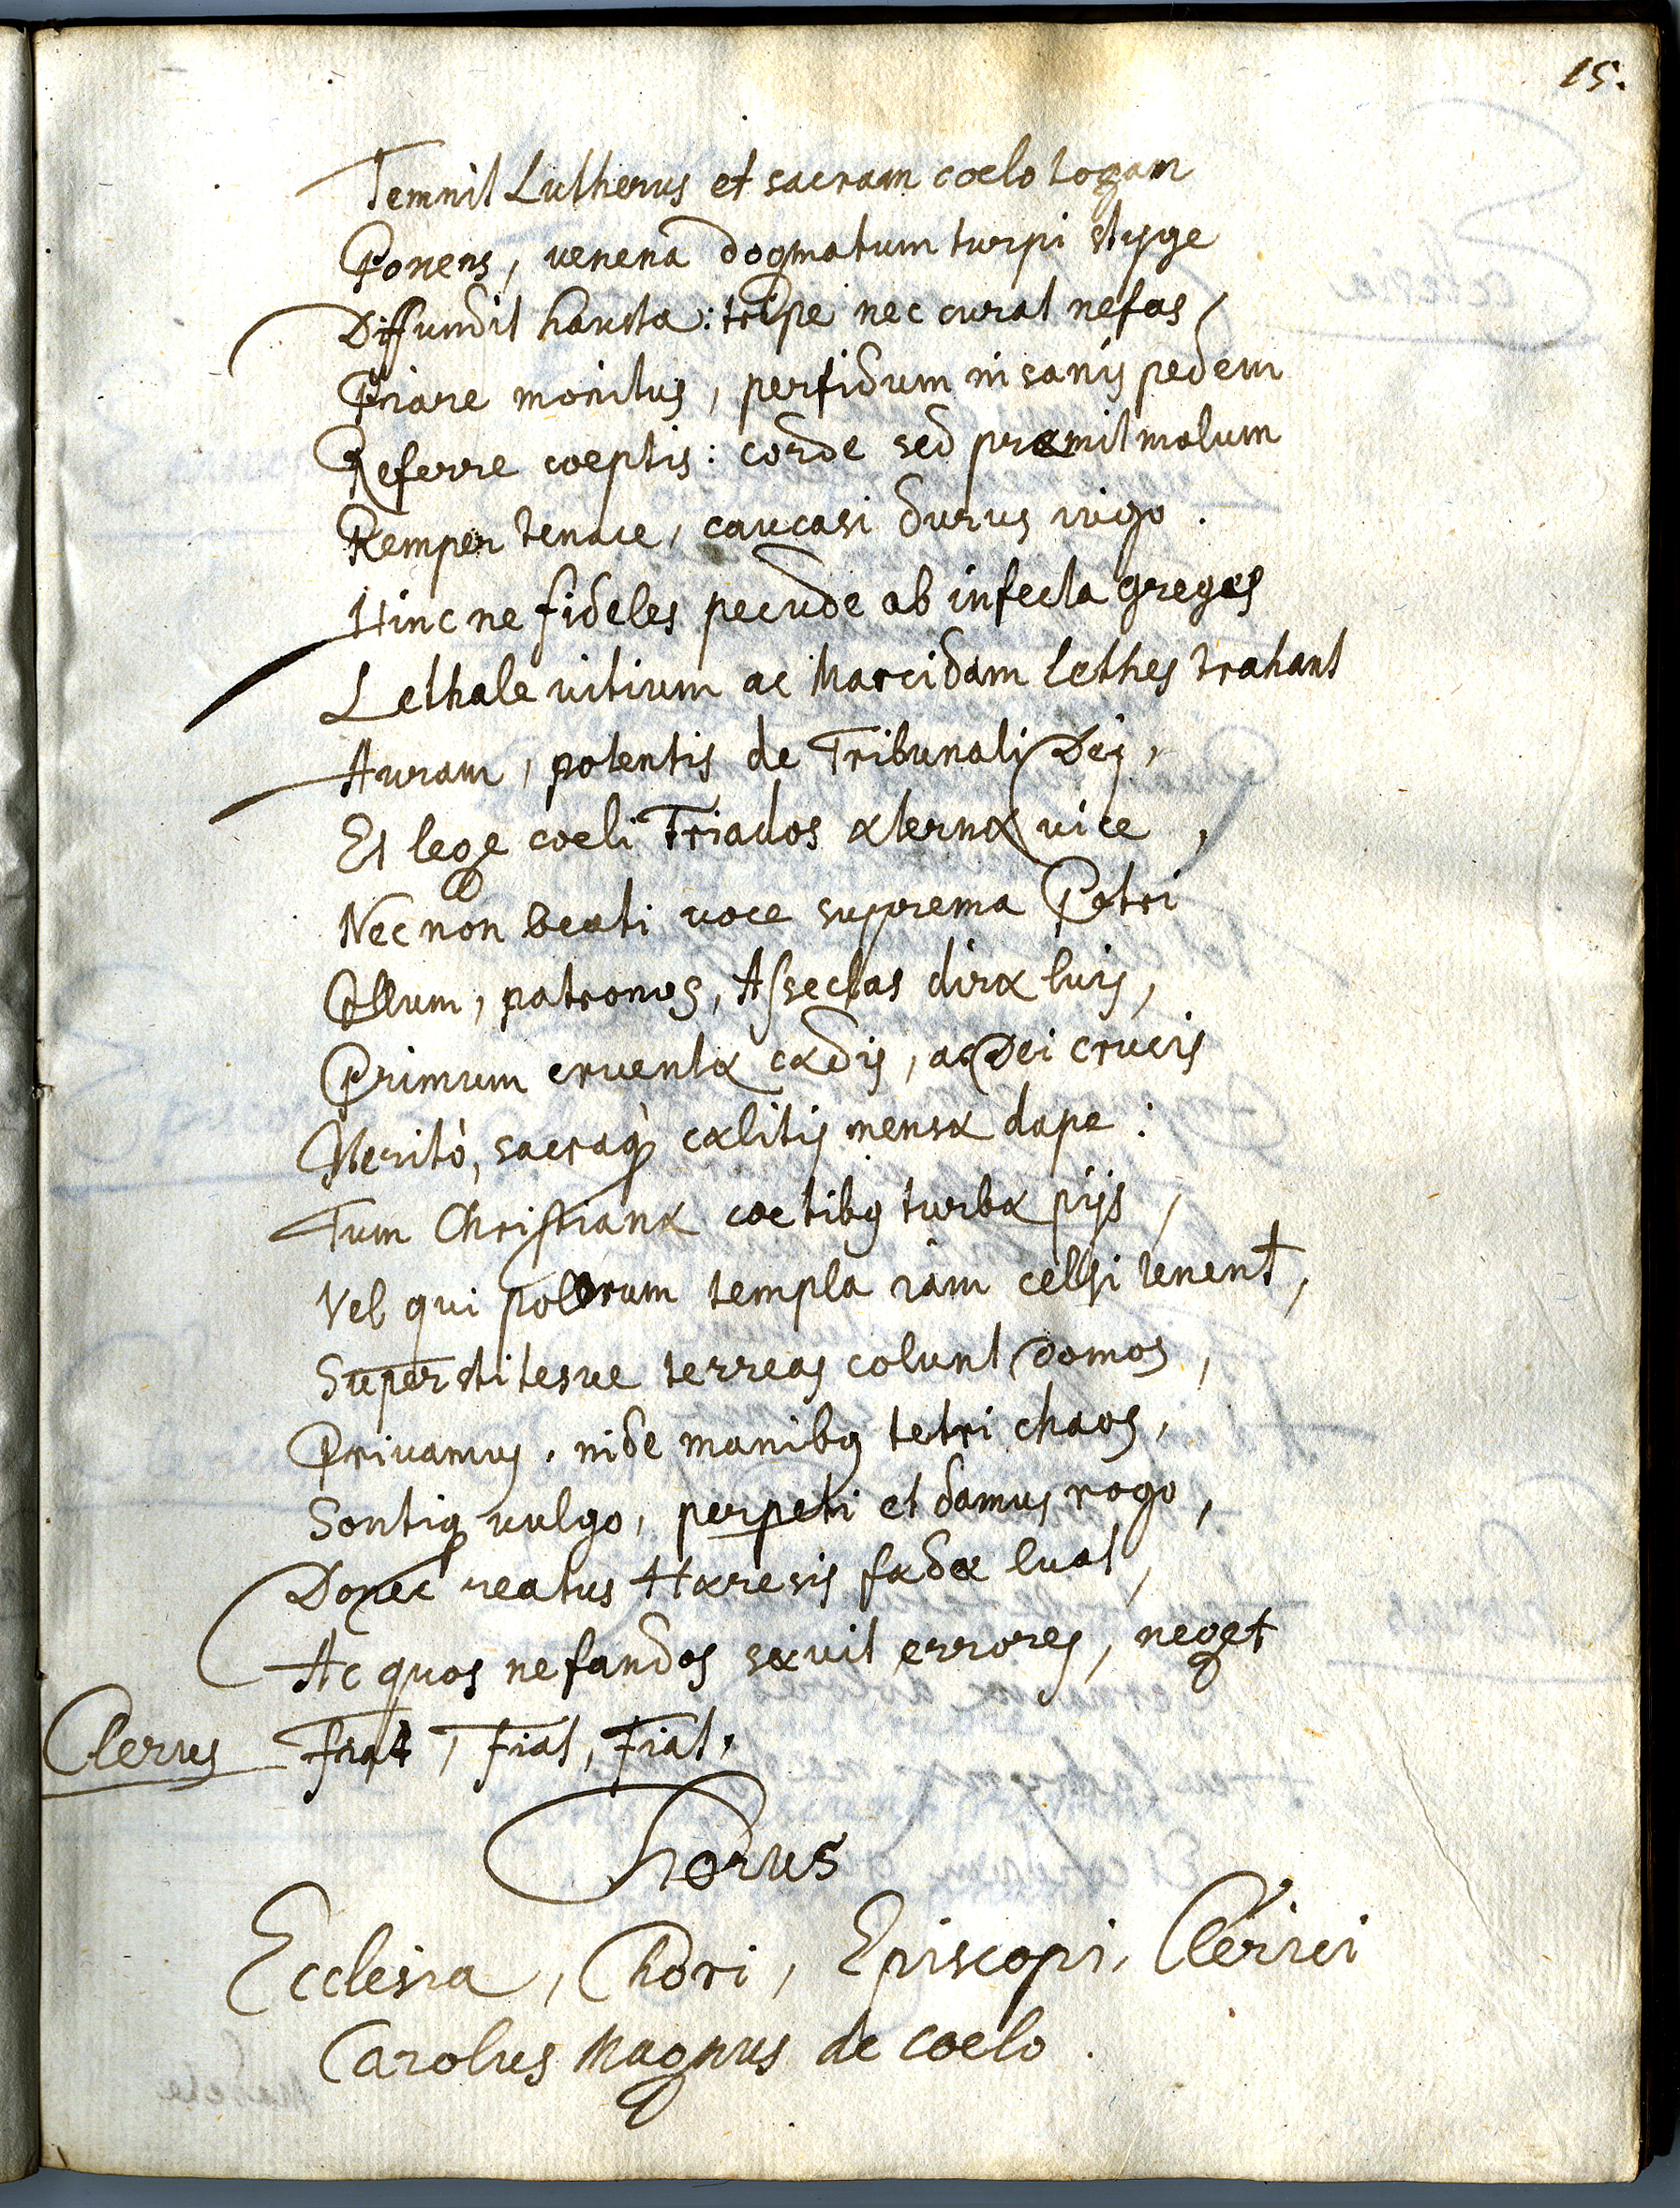 15.
Temnit Lutherus et sacram coelo togam
Ponens, venena dogmatum turpi styge
Diffundit hausta: turpe nec curat nefas
Piare monitus, perfidum insanis pedem
Referre coeptis: corde sed premit malum
Semper tenace, caucasi durus iugo.
Hinc ne fideles pecude ab infecta greges
Lethale vitium ac Marcidam lethes trahant
Auram, potentis de Tribunali Dei,
Et lege coeli Triados æternæ vice,
Nec non beati voce suprema Petri
Illum, patronos, Asseclas diræ luis,
Primum cruentæ cædis, ac Dei crucis
Meritò, sacraq cælitis mensæ dape:
Tum Christianæ coetibq turbæ pijs,
Vel qui polorum templa iam celsi tenent,
Superstitesve terreas colunt domos,
Privamus, inde manibq tetri chaos,
Sontiq vulgo, perpeti et damus rogo,
Donec reatus Hæresis fædæ luat,
Ac quos nefandos sævit errores, neget
Clerus Fiat, Fiat, Fiat.
Chorus
Ecclesia, Chori, Episcopi, Clerici
Carolus Magnus de Coelo.